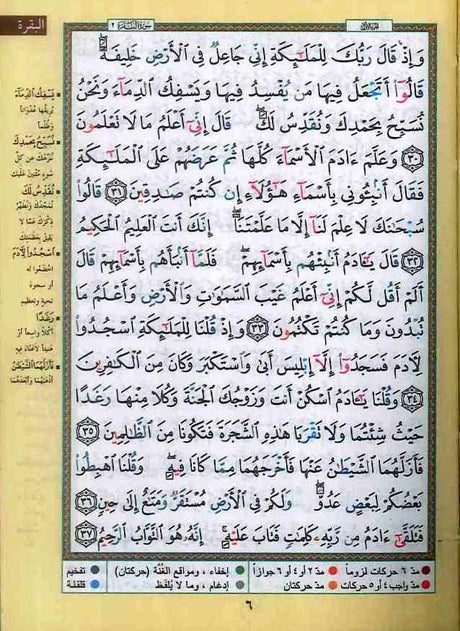 سورة البقرة ٢
البقرة
وَإِذْ قَالَ رَبُّكَ لِلْمَلَٰٓئِكَةِ إِنِّي جَاعِلٌ فِي ٱلْأَرْضِ خَلِيفَةً ۖ
قَالُوٓا۟ أَتَجْعَلُ فِيهَا مَن يُفْسِدُ فِيهَا وَيَسْفِكُ ٱلدِّمَآءَ وَنَحْنُ
نُسَبِّحُ بِحَمْدِكَ وَنُقَدِّسُ لَكَ ۖ قَالَ إِنِّيٓ أَعْلَمُ مَا لَا تَعْلَمُونَ
﴿٣٠﴾ وَعَلَّمَ ءَادَمَ ٱلْأَسْمَآءَ كُلَّهَا ثُمَّ عَرَضَهُمْ عَلَى ٱلْمَلَٰٓئِكَةِ
فَقَالَ أَنۢبِـُٔونِي بِأَسْمَآءِ هَٰٓؤُلَآءِ إِن كُنتُمْ صَٰدِقِينَ ﴿٣١﴾ قَالُوا۟
سُبْحَٰنَكَ لَا عِلْمَ لَنَآ إِلَّا مَا عَلَّمْتَنَآ ۖ إِنَّكَ أَنتَ ٱلْعَلِيمُ ٱلْحَكِيمُ
﴿٣٢﴾ قَالَ يَٰٓـَٔادَمُ أَنۢبِئْهُم بِأَسْمَآئِهِمْ ۖ فَلَمَّآ أَنۢبَأَهُم بِأَسْمَآئِهِمْ قَالَ
أَلَمْ أَقُل لَّكُمْ إِنِّيٓ أَعْلَمُ غَيْبَ ٱلسَّمَٰوَٰتِ وَٱلْأَرْضِ وَأَعْلَمُ مَا
تُبْدُونَ وَمَا كُنتُمْ تَكْتُمُونَ ﴿٣٣﴾ وَإِذْ قُلْنَا لِلْمَلَٰٓئِكَةِ ٱسْجُدُوا۟
لِـَٔادَمَ فَسَجَدُوٓا۟ إِلَّآ إِبْلِيسَ أَبَىٰ وَٱسْتَكْبَرَ وَكَانَ مِنَ ٱلْكَٰفِرِينَ
﴿٣٤﴾ وَقُلْنَا يَٰٓـَٔادَمُ ٱسْكُنْ أَنتَ وَزَوْجُكَ ٱلْجَنَّةَ وَكُلَا مِنْهَا رَغَدًا
حَيْثُ شِئْتُمَا وَلَا تَقْرَبَا هَٰذِهِ ٱلشَّجَرَةَ فَتَكُونَا مِنَ ٱلظَّٰلِمِينَ ﴿٣٥﴾
فَأَزَلَّهُمَا ٱلشَّيْطَٰنُ عَنْهَا فَأَخْرَجَهُمَا مِمَّا كَانَا فِيهِ ۖ وَقُلْنَا ٱهْبِطُوا۟
بَعْضُكُمْ لِبَعْضٍ عَدُوٌّ ۖ وَلَكُمْ فِي ٱلْأَرْضِ مُسْتَقَرٌّ وَمَتَٰعٌ إِلَىٰ حِينٍ ﴿٣٦﴾
فَتَلَقَّىٰٓ ءَادَمُ مِن رَّبِّهِۦ كَلِمَٰتٍ فَتَابَ عَلَيْهِ ۚ إِنَّهُۥ هُوَ ٱلتَّوَّابُ ٱلرَّحِيمُ ﴿٣٧﴾
يَسْفِكُ الدِّمَاءَ
نُسَبِّحُ بِحَمْدِكَ
نُقَدِّسُ لَكَ
اسْجُدُوا لِآدَمَ
اخضعوا له
رَغَدًا
فَأَزَلَّهُمَا الشَّيْطَانُ
مدّ ٦ حركات لزوماً مدّ ٢ أو ٤ أو ٦ جوازاً إخفاء ، ومواقع الغُنَّة (حركتان) تفخيم
مدّ واجب ٤ أو ٥ حركات مدّ حركتان إدغام ، وما لا يُلفظ قلقلة
٦